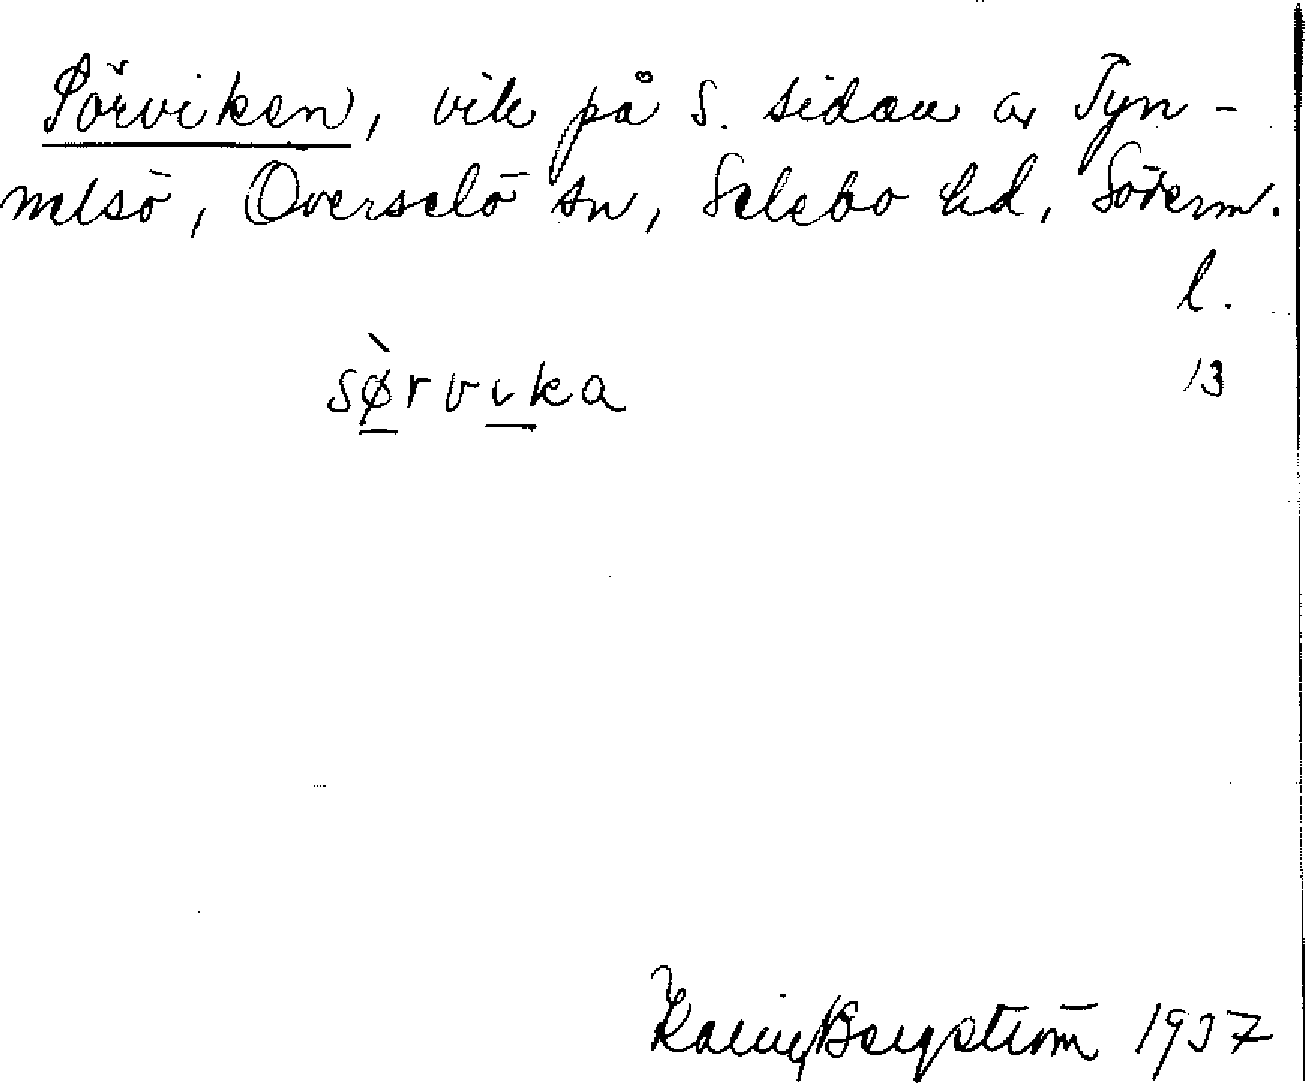 Sörviken, vik på S. sidan av Tyn-
nelsö, Överselö sn, Selebo hd, Söderm.
l.
sø̀rvika
13
Karin Bergström 1937